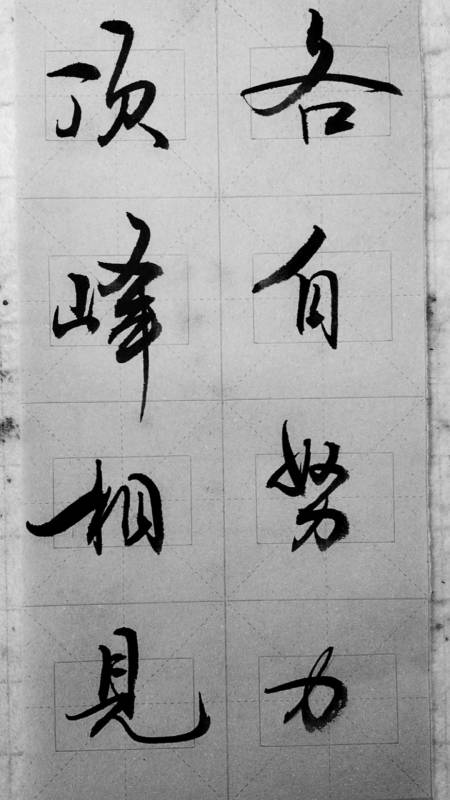 各自努力
顶峰相见